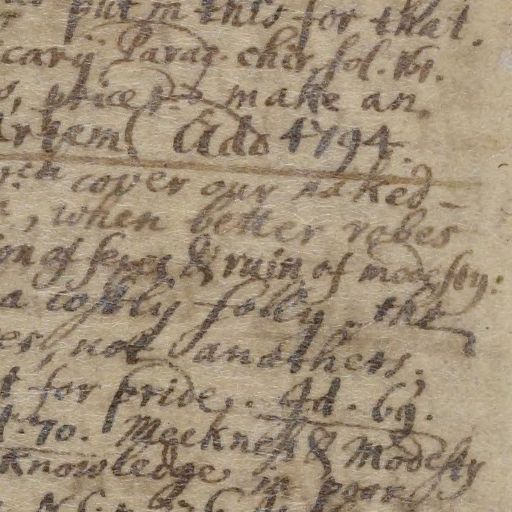 put in this for that.
cary Parag. chir. fol. 161.
, prices make an
Ado 4794.
wch cover our naked-
, when better robes
on of sexes & ruin of modesty:
a costly folly. the
es, not anothers.
t for pride. Id. 69.
t. 70. Meekness & Modesty
Knowledge in poor